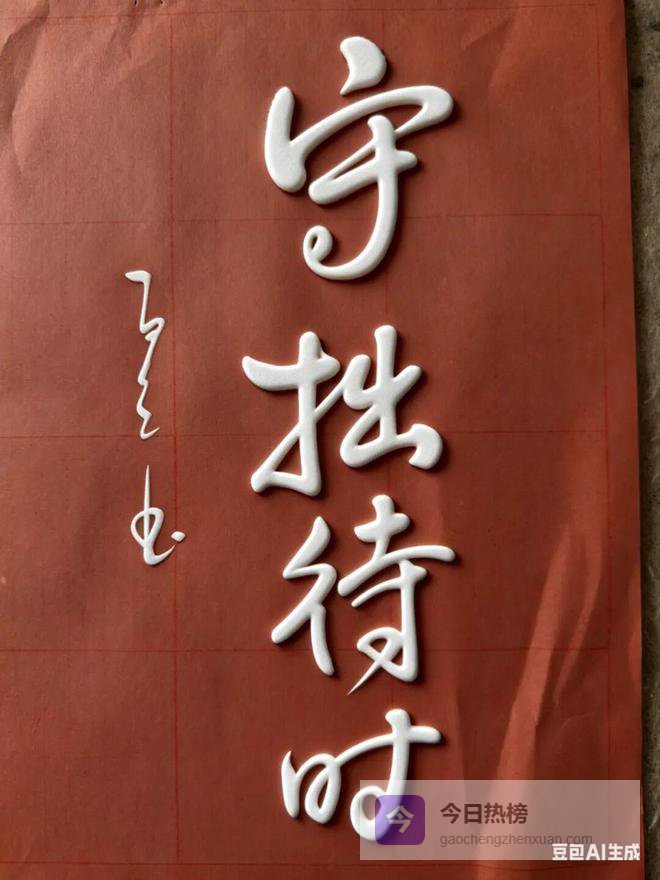 守拙待时
书
今 今日热榜
gaochengzhenxuan.com
豆包AI生成